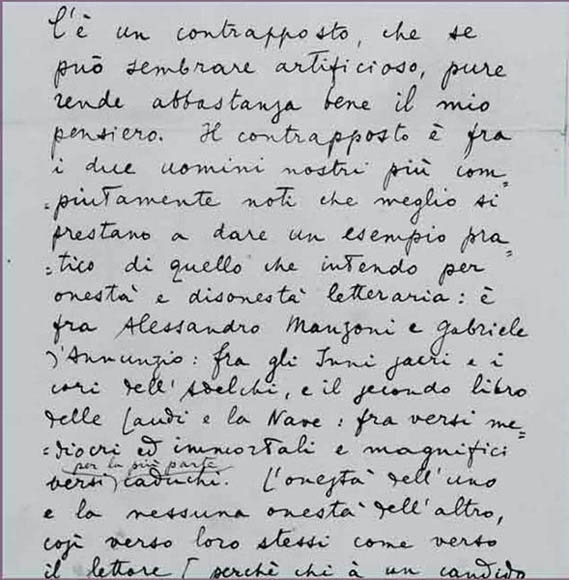 C'è un contrapposto, che se
può sembrare artificioso, pure
rende abbastanza bene il mio
pensiero. Il contrapposto è fra
i due uomini nostri più com=
=piutamente noti che meglio si
prestano a dare un esempio pra=
=tico di quello che intendo per
onestà e disonestà letteraria: è
fra Alessandro Manzoni e Gabriele
D'Annunzio: fra gli Inni sacri e i
cori dell'Adelchi, e il secondo libro
delle Laudi e la Nave: fra versi me=
=diocri ed immortali e magnifici
per la più parte
versi caduchi. L'onestà dell'uno
e la nessuna onestà dell'altro,
così verso loro stessi come verso
il lettore (perchè chi à un candido